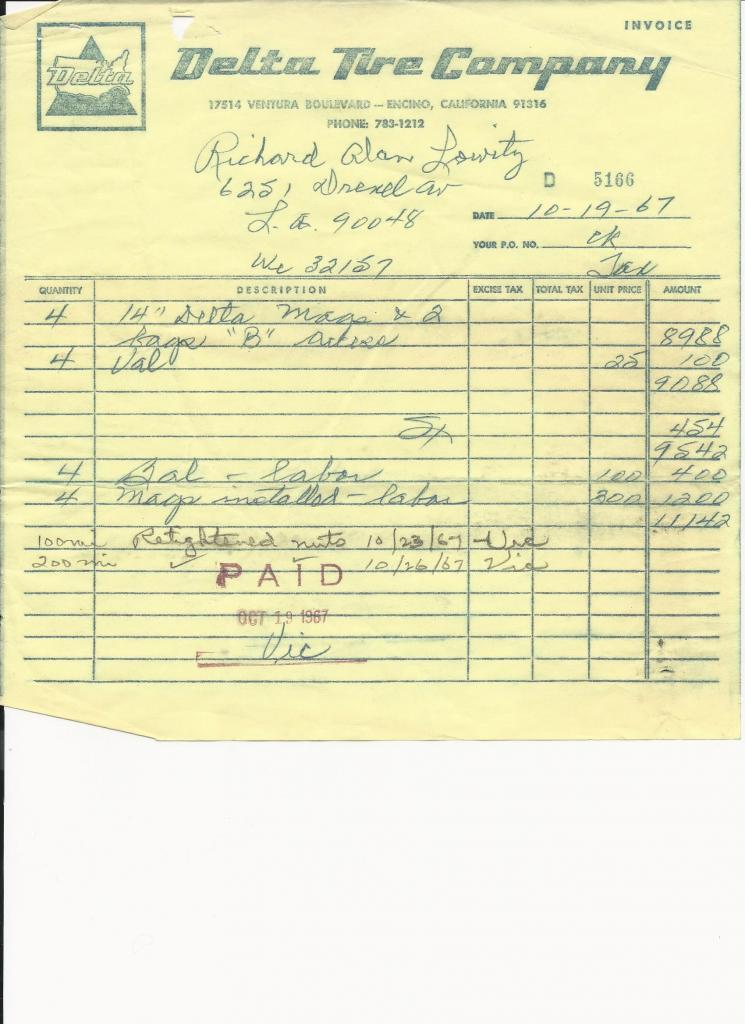 INVOICE
Delta
Delta Tire Company
17514 VENTURA BOULEVARD — ENCINO, CALIFORNIA 91316
PHONE: 783-1212
Richard Alan Lowitz
6251 Drexel Av
D 5166
L.A. 90048
DATE 10-19-67
YOUR P.O. NO. ck
We 32157
Tax
QUANTITY DESCRIPTION EXCISE TAX TOTAL TAX UNIT PRICE AMOUNT
4 14" Delta Mags & 2
bags "B" 8988
4 Val 25 100
9088
5% 454
9542
4 Bal - labor 100 400
4 Mags installed - labor 300 1200
11142
100 mi Retightened nuts 10/23/67 Vic
200 mi ✓ ✓ 10/26/67 Vic
PAID
OCT 19 1967
Vic